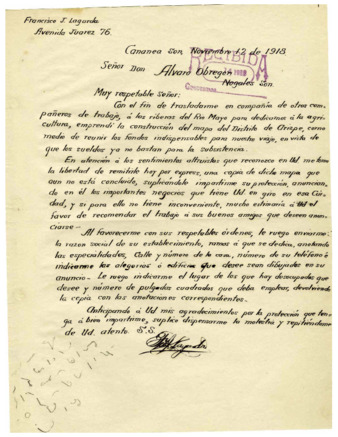 Francisco J. Laguarda
Avenida Juarez 76.
Cananea Son, Noviembre 12 de 1918
Señor Don Alvaro Obregón
RECIBIDA
Nogales Son.
Muy respetable Señor:
Con el fin de trasladarme en compañía de otros com-
pañeros de trabajo, á las riberas del Río Mayo para dedicarnos á la agri-
cultura, emprendí la construcción del mapa del Distrito de Arizpe, como
medio de reunir los fondos indispensables para nuestro viaje, en vista de
que los sueldos ya no bastan para la subsistencia.
En atención á los sentimientos altruistas que reconozco en Ud me tomo
la libertad de remitirle hoy por express, una copia de dicho mapa que
aun no está concluído, suplicandole impartirme su protección, anuncian-
do en él los importantes negocios que tiene Ud en giro en esa Ciu-
dad, y si para ello no tiene inconveniente, mucho estimaría á Ud el
favor de recomendar el trabajo á sus buenos amigos que deseen anun-
ciarse-
Al favorecerme con sus respetables órdenes, le ruego enviarme:
la razon social de su establecimiento, ramos á que se dedica, anotando
las especialidades, Calle y número de la casa, número de su teléfono é
indicarme las alegorías ó edificios que desee sean dibujados en su
anuncio- Le ruego indicarme el lugar de los que hay desocupados que
desee y número de pulgadas cuadradas que deba emplear, devolviendo
la copia con las anotaciones correspondientes.
Anticipando á Ud mis agradecimientos por la protección que ten-
ga á bien impartirme, suplico dispensarme la molestia y repitiéndome
de Ud. atento S.S.